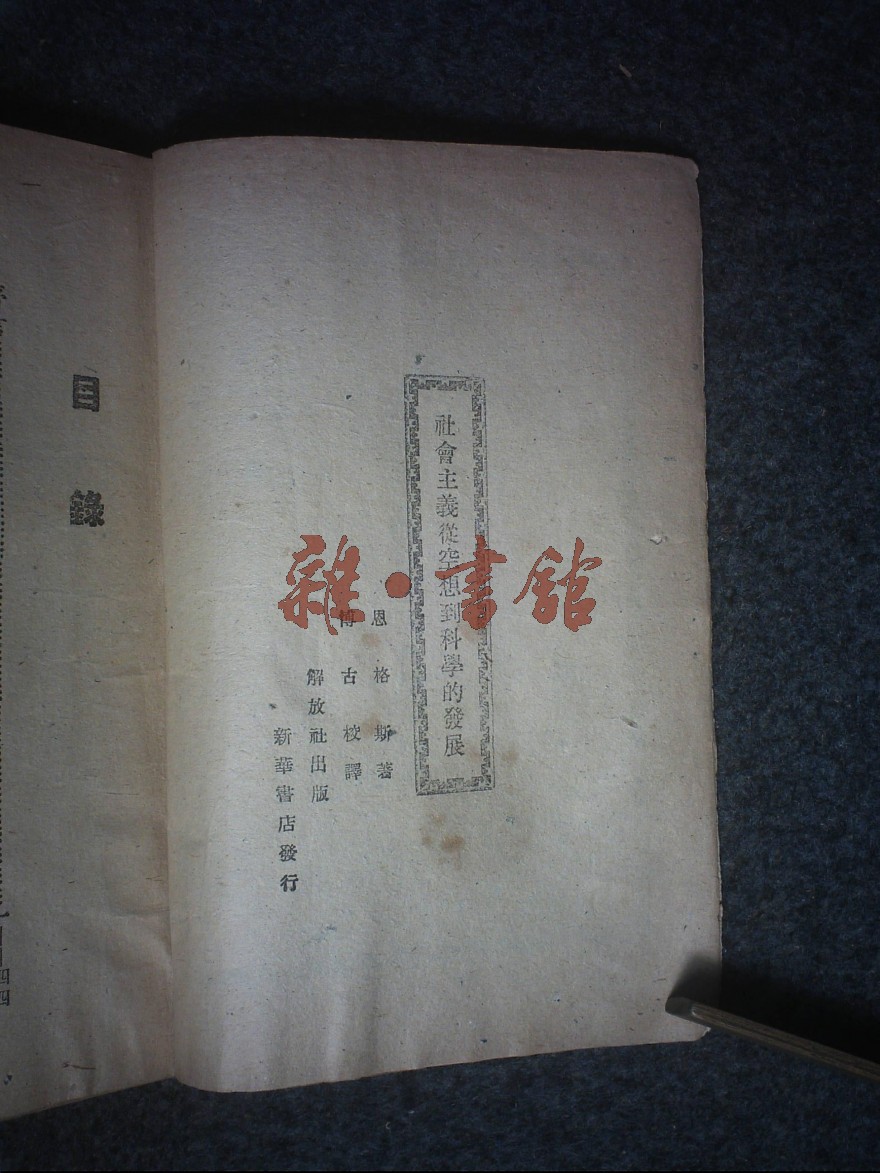 社會主義從空想到科學的發展
恩格斯著
博古校譯
解放社出版
新華書店發行
目錄
四四
雜·書館